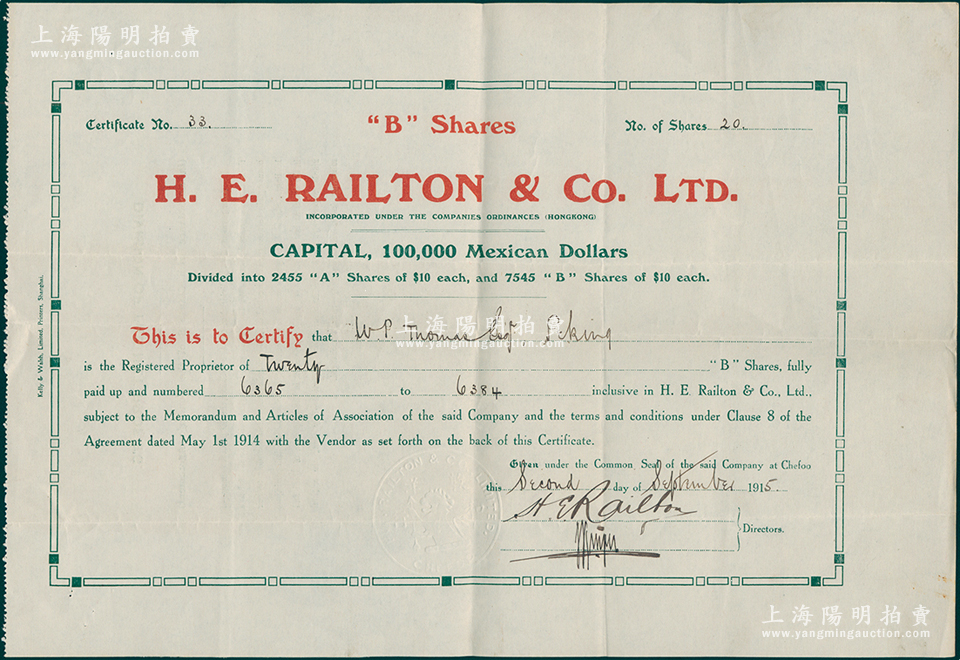 上海陽明拍賣
www.yangmingauction.com
Certificate No. 33.
"B" Shares
No. of Shares 20.
H. E. RAILTON & Co. LTD.
INCORPORATED UNDER THE COMPANIES ORDINANCES (HONGKONG)
CAPITAL, 100,000 Mexican Dollars
Divided into 2455 "A" Shares of $10 each, and 7545 "B" Shares of $10 each.
上海陽明拍賣
www.yangmingauction.com
This is to Certify that W. P. Thomas Esqr Peking
is the Registered Proprietor of Twenty "B" Shares, fully
paid up and numbered 6365 to 6384 inclusive in H. E. Railton & Co., Ltd.,
subject to the Memorandum and Articles of Association of the said Company and the terms and conditions under Clause 8 of the
Agreement dated May 1st 1914 with the Vendor as set forth on the back of this Certificate.
Given under the Common Seal of the said Company at Chefoo
this Second day of September 1915.
H. E. Railton
Directors.
Kelly & Walsh, Limited, Printers, Shanghai.
上海陽明拍賣
www.yangmingauction.com